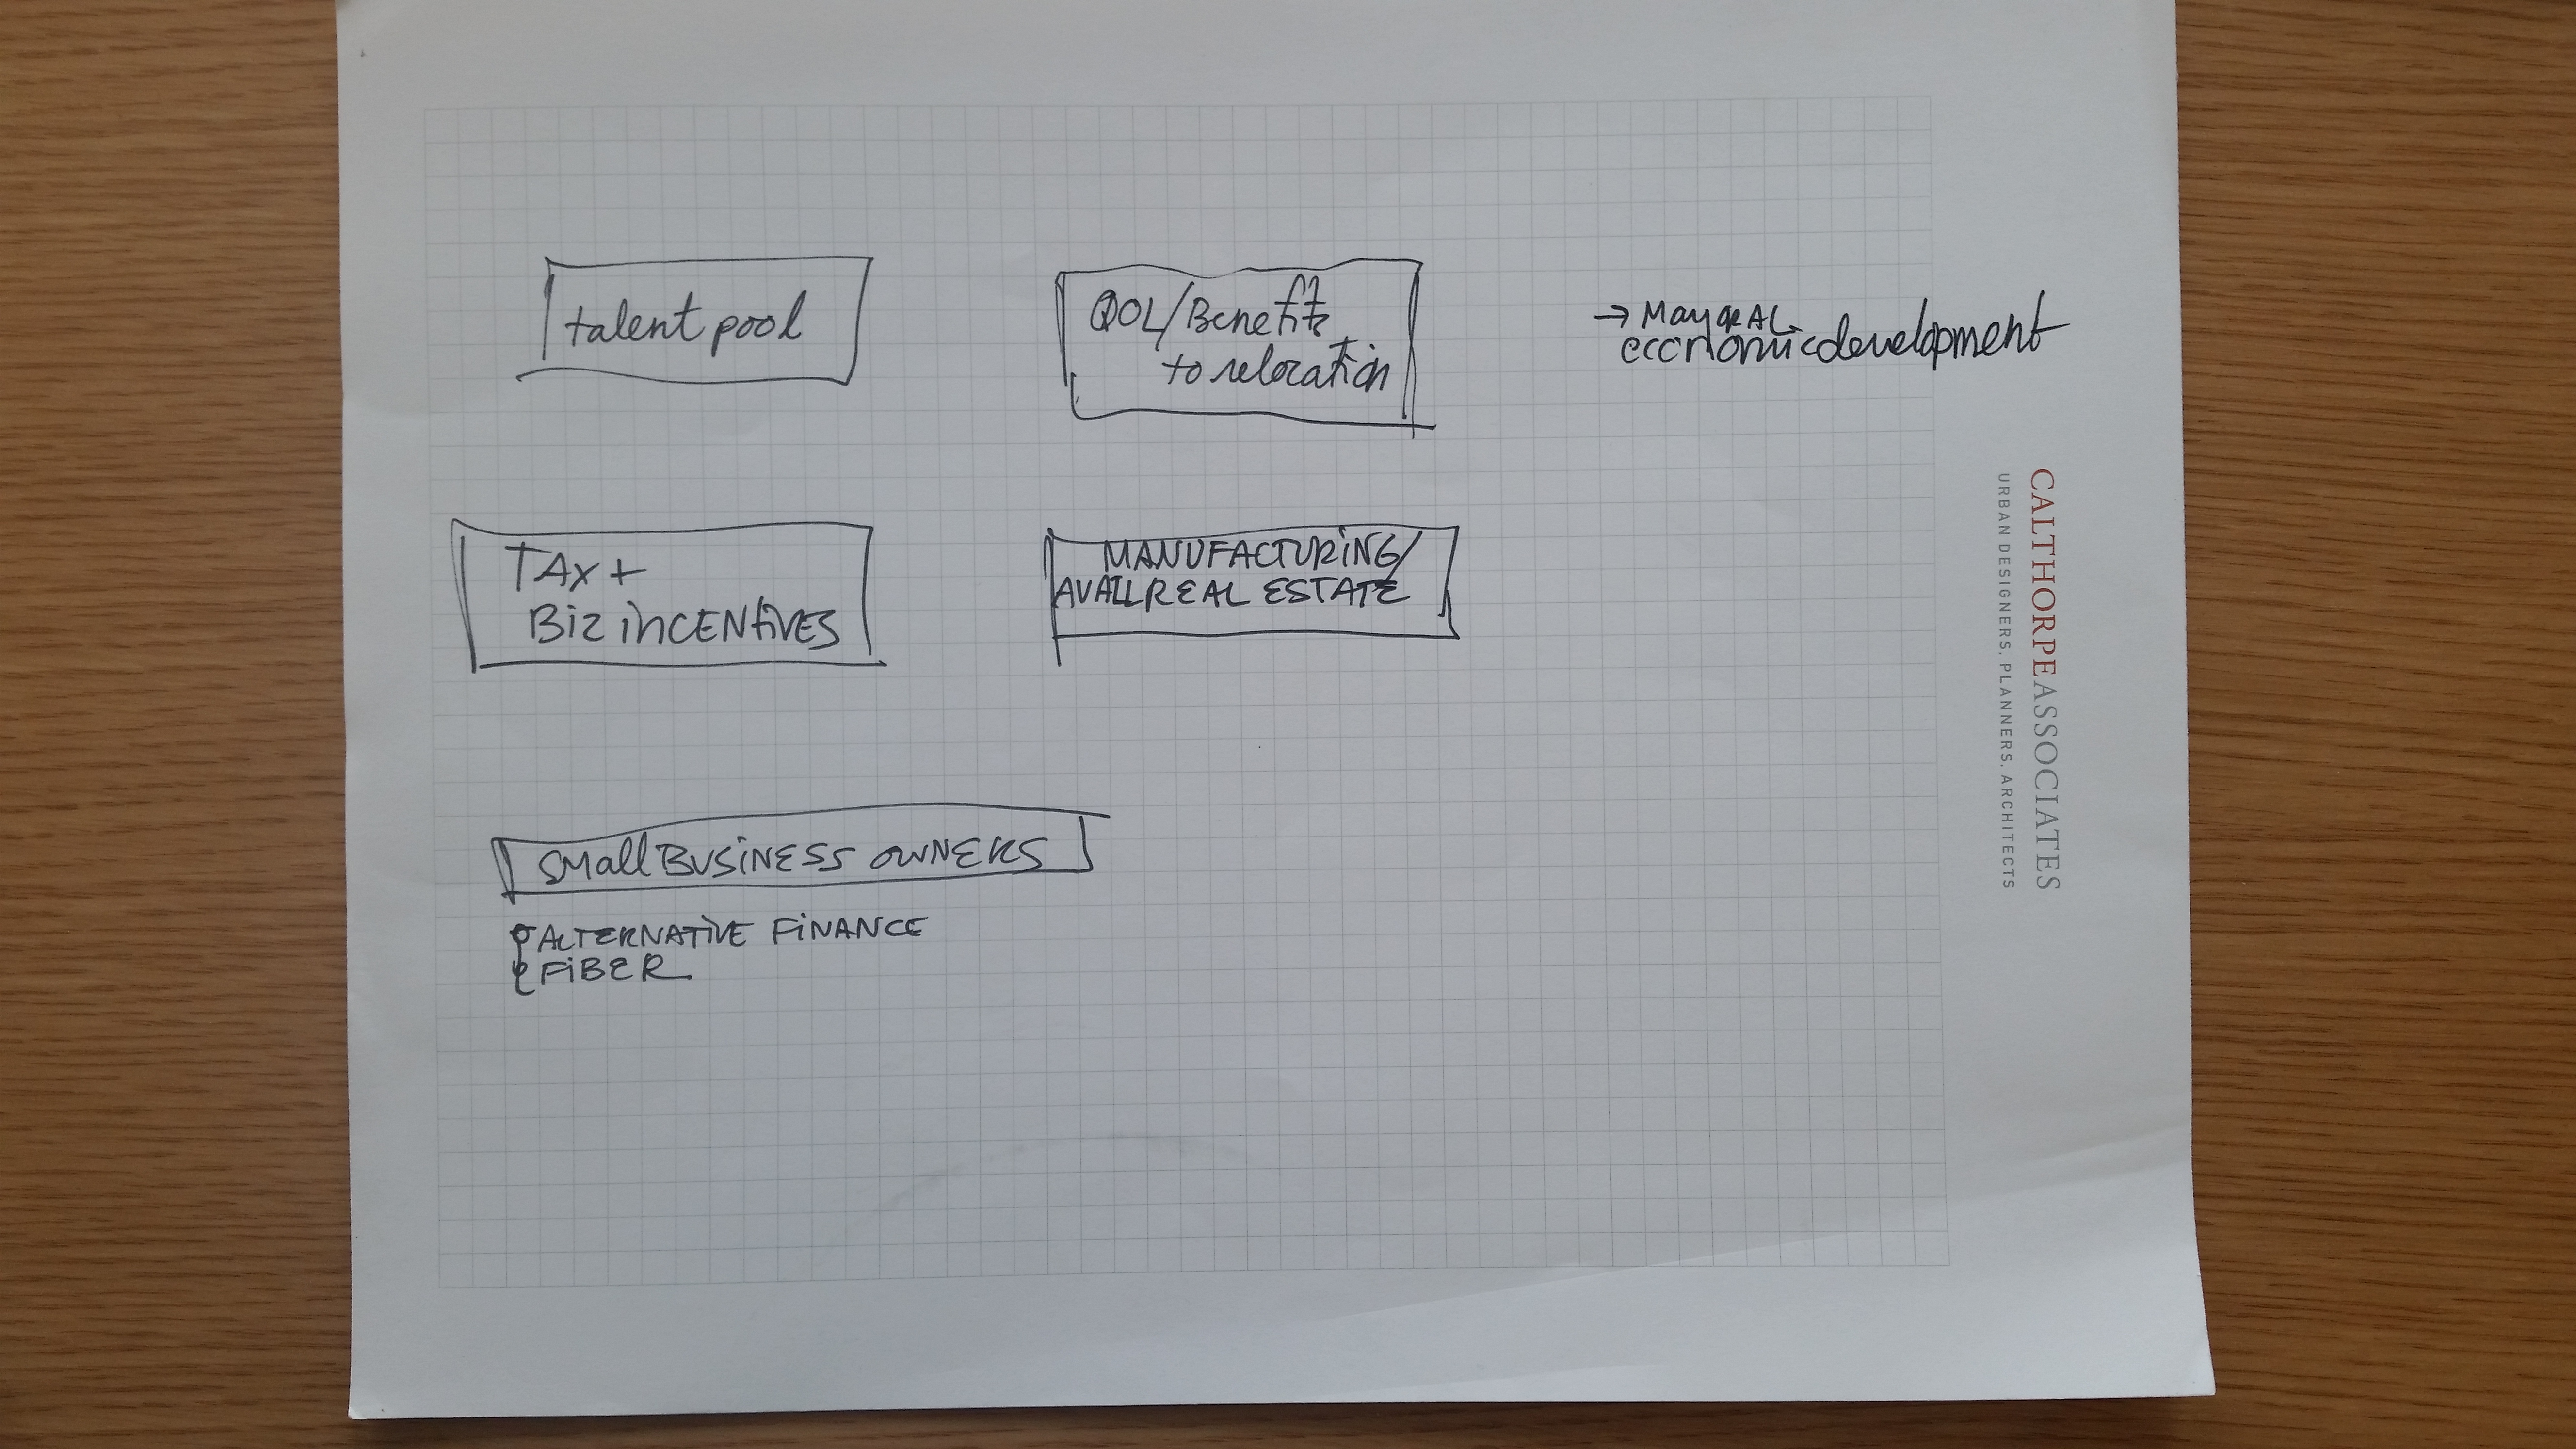 talent pool
QOL/Benefits
to relocation
→
economic development
TAX +
Biz iNCENtiVES
MANUFACTURiNG/
AVAIL REAL ESTATE
SMall BUSiNESS OWNERS
ALTERNATiVE FiNANCE
FiBER
CALTHORPEASSOCIATES
URBAN DESIGNERS, PLANNERS, ARCHITECTS